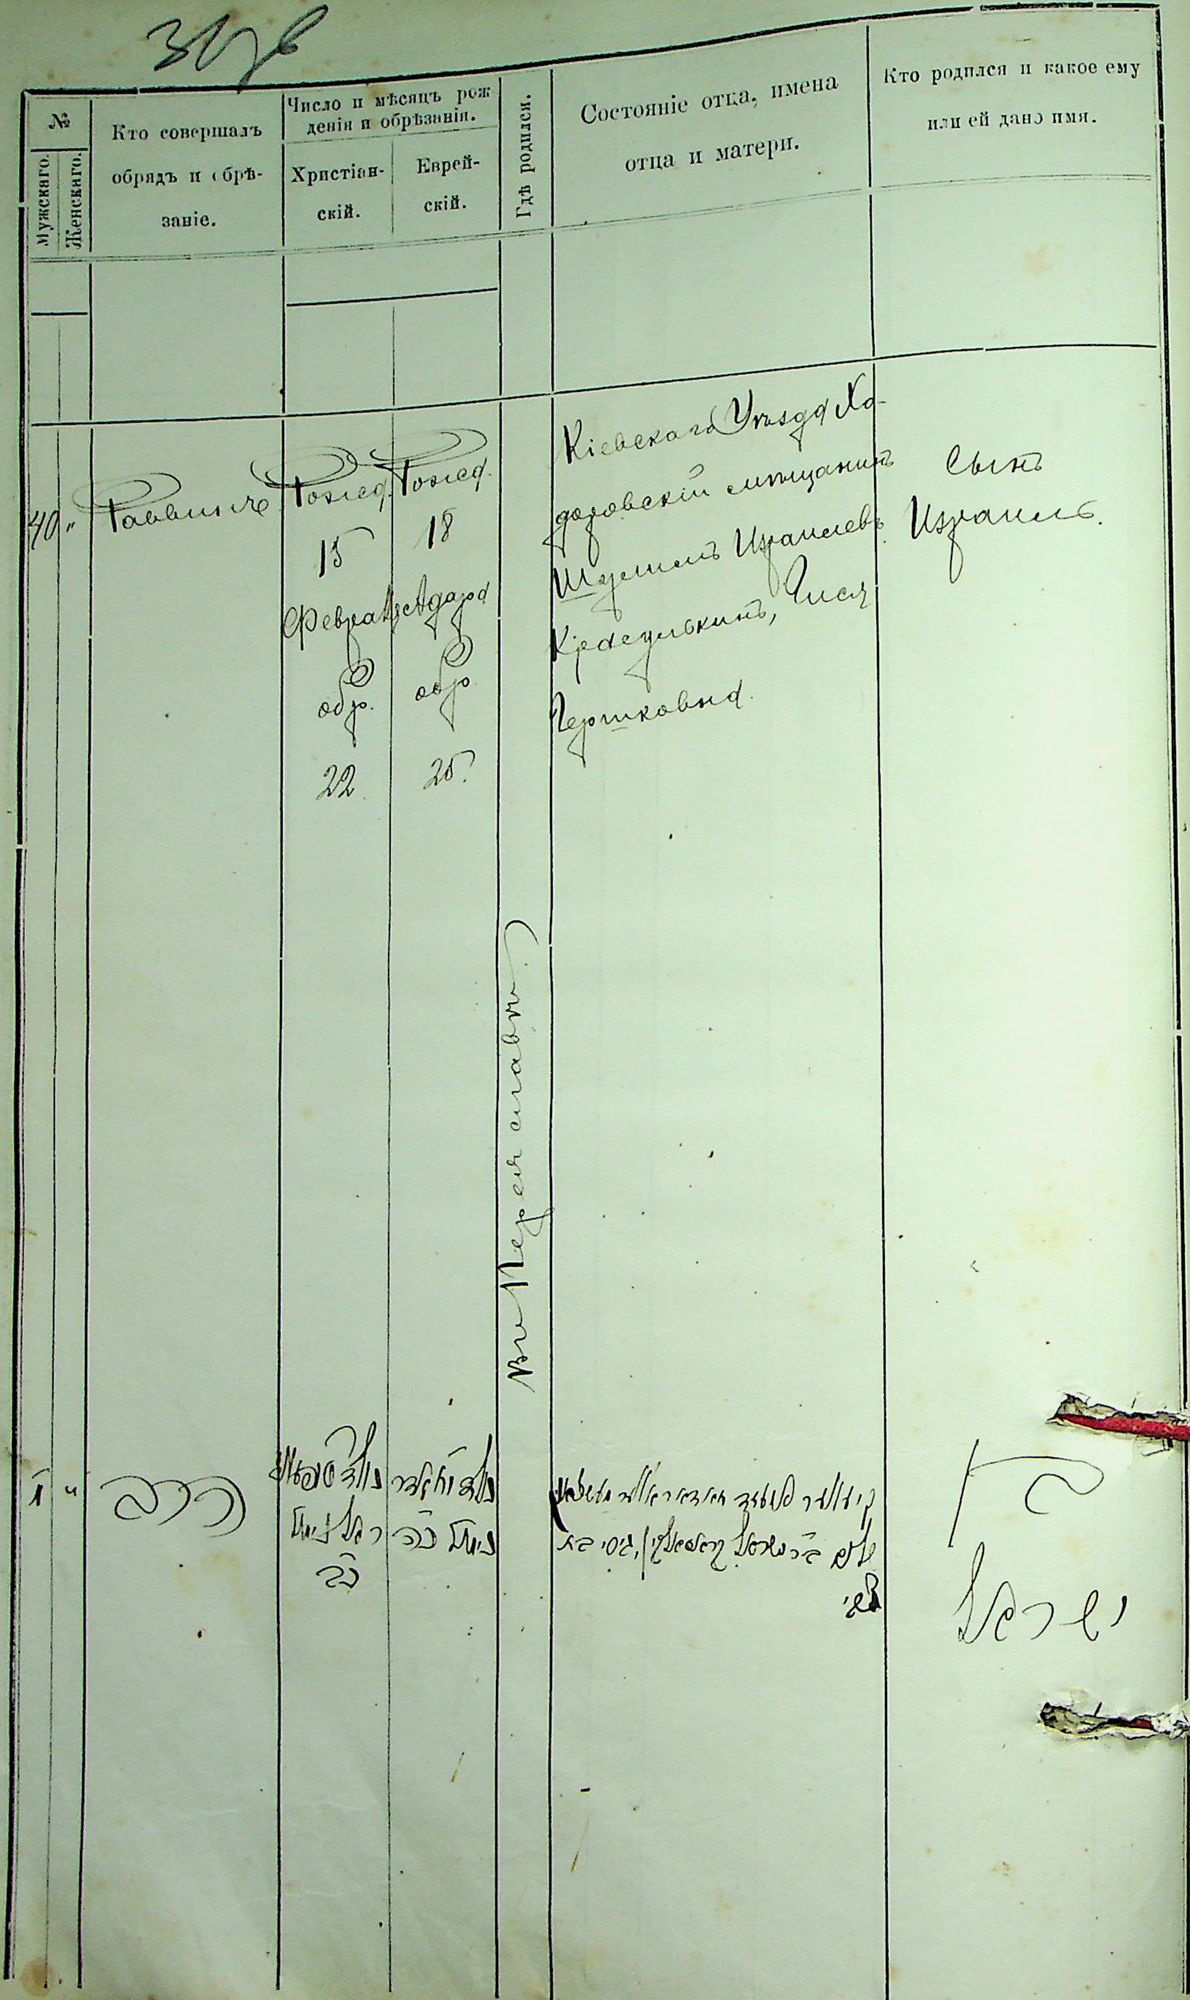 №
Мужскаго.
Женскаго.
Кто совершалъ
обрядъ и обрѣ-
заніе.
Число и мѣсяцъ рож
денія и обрѣзанія.
Христіан-
скій.
Еврей-
скій.
Гдѣ родился.
Состояніе отца, имена
отца и матери.
Кто родился и какое ему
или ей дано имя.
40 "
Раввинъ
Рожд.
15
Февраля
обр.
22
Рожд.
18
Адара
обр.
25.
въ Переяславѣ
Кіевскаго Уѣзда Хо-
доровскій мѣщанинъ
Шулимъ Израилевъ
Красулькинъ, Гися
Гершковна.
Сынъ
Израиль.
הרב
נולד
כב
נולד
נימול כה
שלום ב״ר ישראל
צבי
בן
ישראל